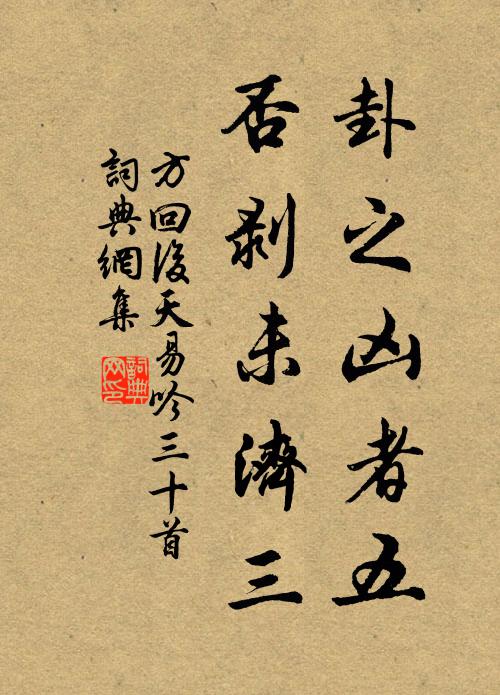 卦之凶者五
否剥未濟三
方回後天易吟三十首
詞典網集
詞典
网印